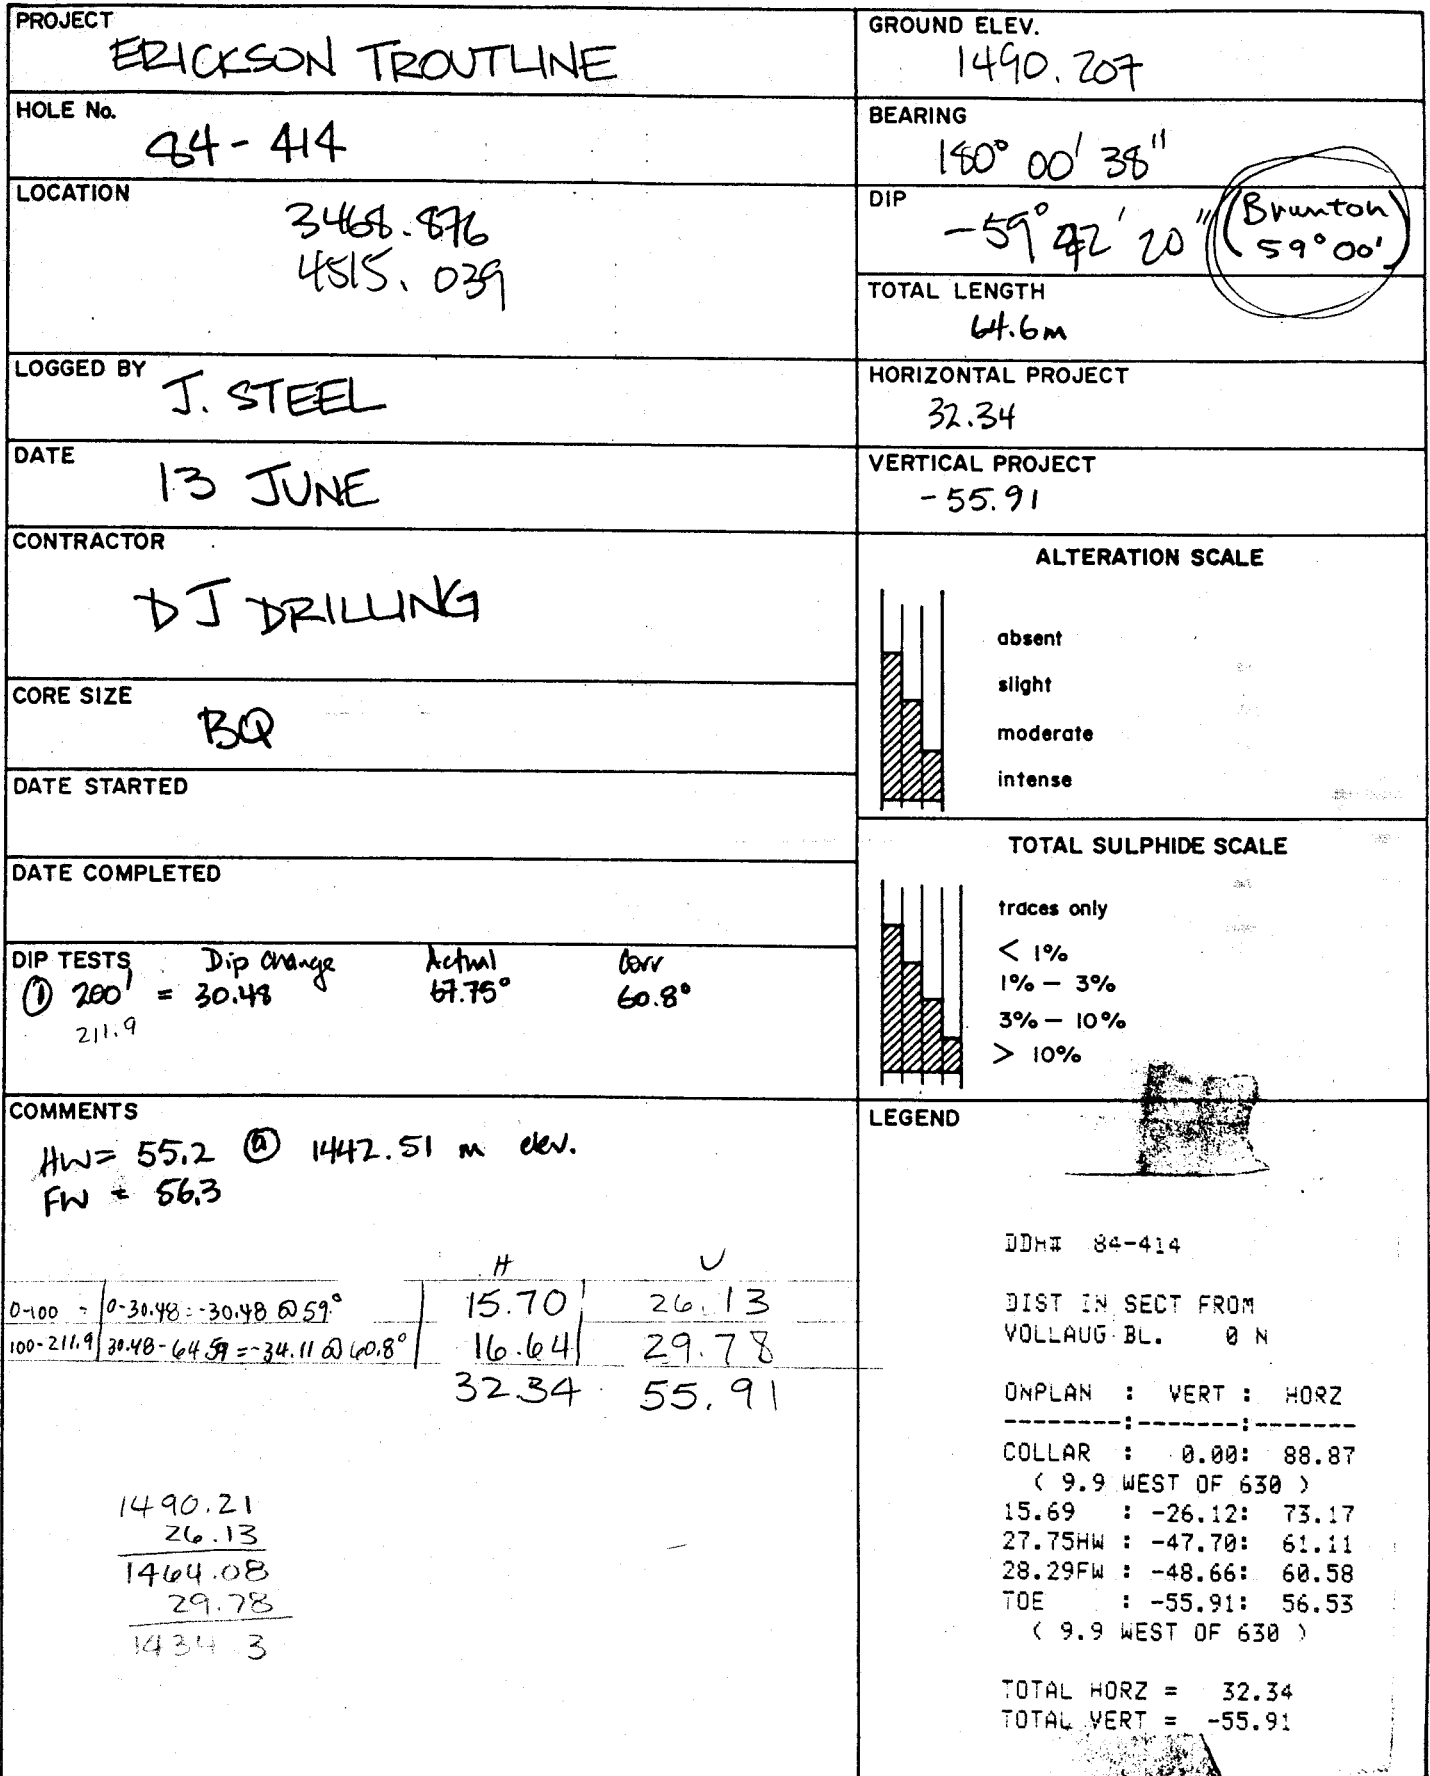 PROJECT
ERICKSON TROUTLINE
HOLE No.
84-414
LOCATION
3468.876
4515.039
LOGGED BY
J. STEEL
DATE
13 JUNE
CONTRACTOR
DJ DRILLING
CORE SIZE
BQ
DATE STARTED
DATE COMPLETED
DIP TESTS Dip Change Actual Corr
① 200' = 30.48 67.75° 60.8°
211.9
COMMENTS
HW= 55.2 @ 1442.51 m elev.
FW = 56.3
H V
0-100 = 0-30.48 = -30.48 @ 59° 15.70 26.13
100-211.9 30.48-64.59 = -34.11 @ 60.8° 16.64 29.78
32.34 55.91
1490.21
26.13
1464.08
29.78
1434.3
GROUND ELEV.
1490.207
BEARING
180° 00' 38"
DIP
-59° 42' 20" (Brunton 59° 00')
TOTAL LENGTH
64.6m
HORIZONTAL PROJECT
32.34
VERTICAL PROJECT
-55.91
ALTERATION SCALE
absent
slight
moderate
intense
TOTAL SULPHIDE SCALE
traces only
< 1%
1% — 3%
3% — 10%
> 10%
LEGEND
DDH# 84-414
DIST IN SECT FROM
VOLLAUG BL. 0 N
ONPLAN : VERT : HORZ
--------:-------:-------
COLLAR : 0.00: 88.87
( 9.9 WEST OF 630 )
15.69 : -26.12: 73.17
27.75HW : -47.70: 61.11
28.29FW : -48.66: 60.58
TOE : -55.91: 56.53
( 9.9 WEST OF 630 )
TOTAL HORZ = 32.34
TOTAL VERT = -55.91